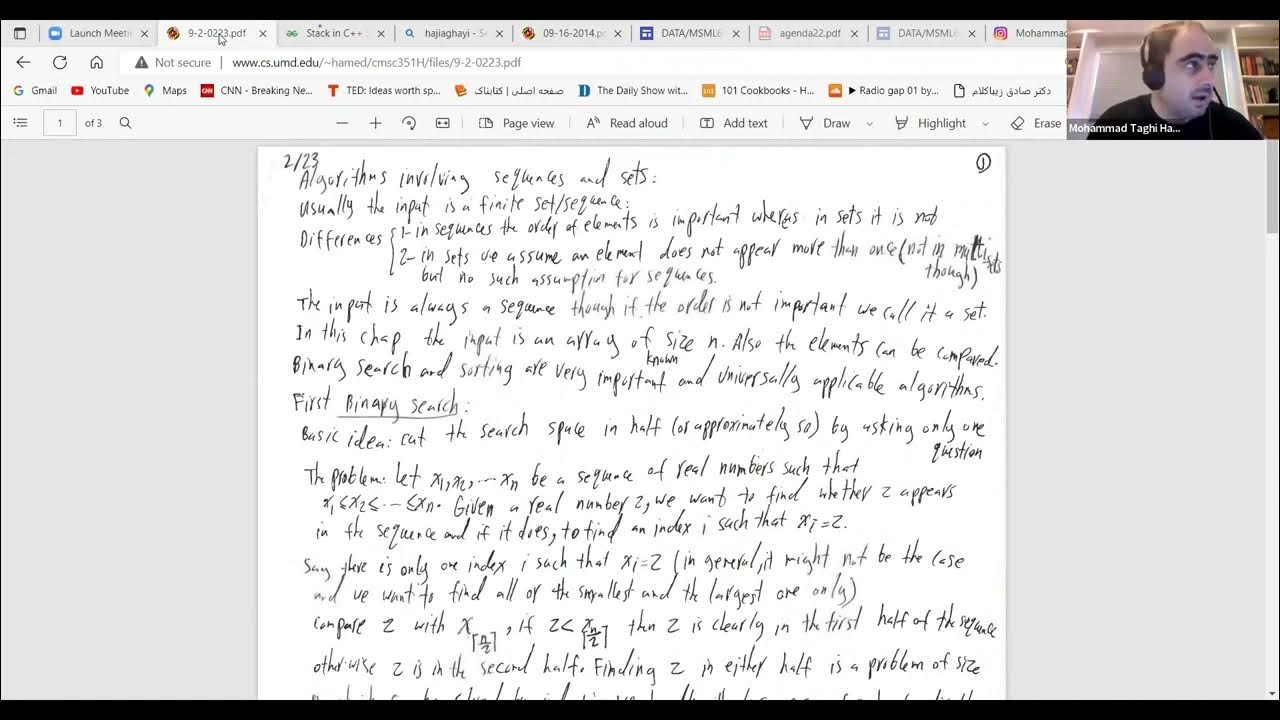 Launch Meeti
9-2-0223.pdf
Stack in C++
hajiaghayi - S
09-16-2014.p
DATA/MSML6
agenda22.pdf
DATA/MSML6
Mohammad
Not secure | www.cs.umd.edu/~hamed/cmsc351H/files/9-2-0223.pdf
Gmail
YouTube
Maps
CNN - Breaking Ne...
TED: Ideas worth sp...
صفحه اصلی | کتابناک
The Daily Show wit...
101 Cookbooks - H...
Radio gap 01 by...
دکتر صادق زیباکلام
1 of 3
Page view
Read aloud
Add text
Draw
Highlight
Erase
Mohammad Taghi Ha...
2/23
1
Algorithms involving sequences and sets:
Usually the input is a finite set/sequence:
Differences
1- in sequences the order of elements is important wheras in sets it is not
2- in sets we assume an element does not appear more than once (not in multisets though)
but no such assumption for sequences.
The input is always a sequence though if the order is not important we call it a set.
In this chap the input is an array of size n. Also the elements can be compared.
Binary search and sorting are very important known and universally applicable algorithms.
First Binary search:
Basic idea: cut the search space in half (or approximately so) by asking only one
question
The problem: Let x₁, x₂, ... xₙ be a sequence of real numbers such that
x₁≤x₂≤...≤xₙ. Given a real number z, we want to find whether z appears
in the sequence and if it does, to find an index i such that xᵢ=z.
Say there is only one index i such that xᵢ=z (in general, it might not be the case
and we want to find all or the smallest and the largest one only)
Compare z with x⌈n/2⌉, if z< x⌈n/2⌉ then z is clearly in the first half of the sequence
otherwise z is in the second half. Finding z in either half is a problem of size